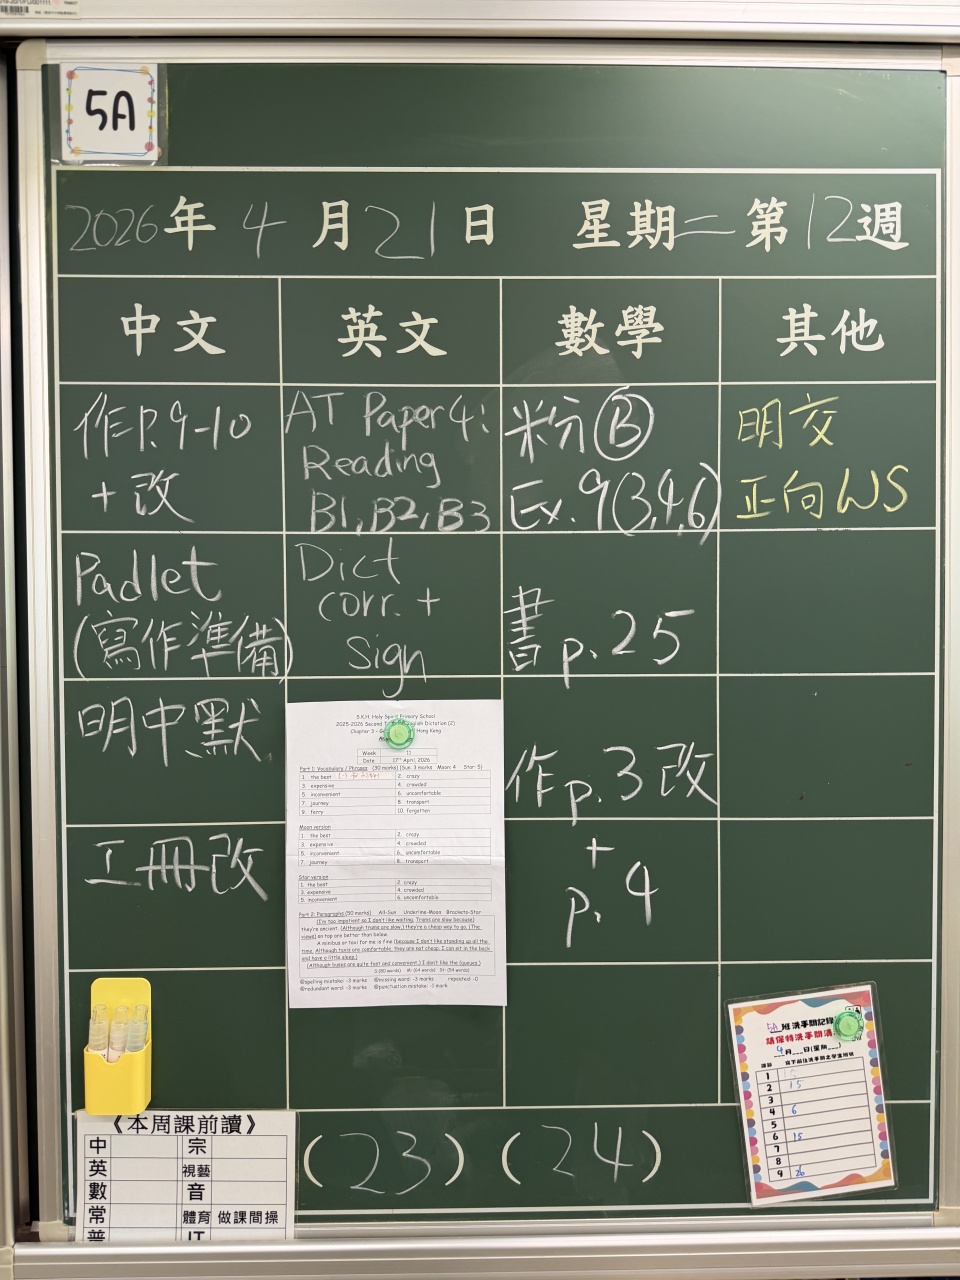 5A
2026年4月21日 星期二 第12週
中文 英文 數學 其他
作P.9-10
+改
Padlet
(寫作準備)
明中默
工冊改
AT Paper 4:
Reading
B1, B2, B3
Dict
corr. +
Sign
粉分Ⓑ
Ex. 9(3,4,6)
書p. 25
作p. 3改
+
p. 4
明交
正向WS
S.K.H. Holy Spirit Primary School
Week 11
Date 17th April, 2026
Part 1: Vocabulary / Phrases (30 marks) (Sun: 3 marks Moon: 4 Star: 5)
1. the best 2. crazy
3. expensive 4. crowded
5. inconvenient 6. uncomfortable
7. journey 8. transport
9. ferry 10. forgotten
Moon version
1. the best 2. crazy
3. expensive 4. crowded
5. inconvenient 6. uncomfortable
7. journey 8. transport
Star version
1. the best 2. crazy
3. expensive 4. crowded
5. inconvenient 6. uncomfortable
Part 2: Paragraphs (50 marks) All-Sun Underline-Moon Brackets-Star
(I'm too impatient so I don't like waiting. Trams are slow because)
they're ancient. (Although trams are slow,) they're a cheap way to go. (The
views) on top are better than below.
A minibus or taxi for me is fine (because I don't like standing up all the
time. Although taxis are comfortable, they are not cheap. I can sit in the back
and have a little sleep.)
(Although buses are quite fast and convenient,) I don't like the (queues.)
S:(80 words) M: (64 words) St: (54 words)
@spelling mistake: -3 marks @missing word: -3 marks repeated: -0
@redundant word: -3 marks @punctuation mistake: -1 mark
《本周課前讀》
中 宗
英 視藝
數 音
常 體育 做課間操
普 IT
(23) (24)
5A 班洗手間記錄
請保持洗手間清
4月 日(星期 )
1 15
2 15
3
4 6
5
6 15
7
8
9 26